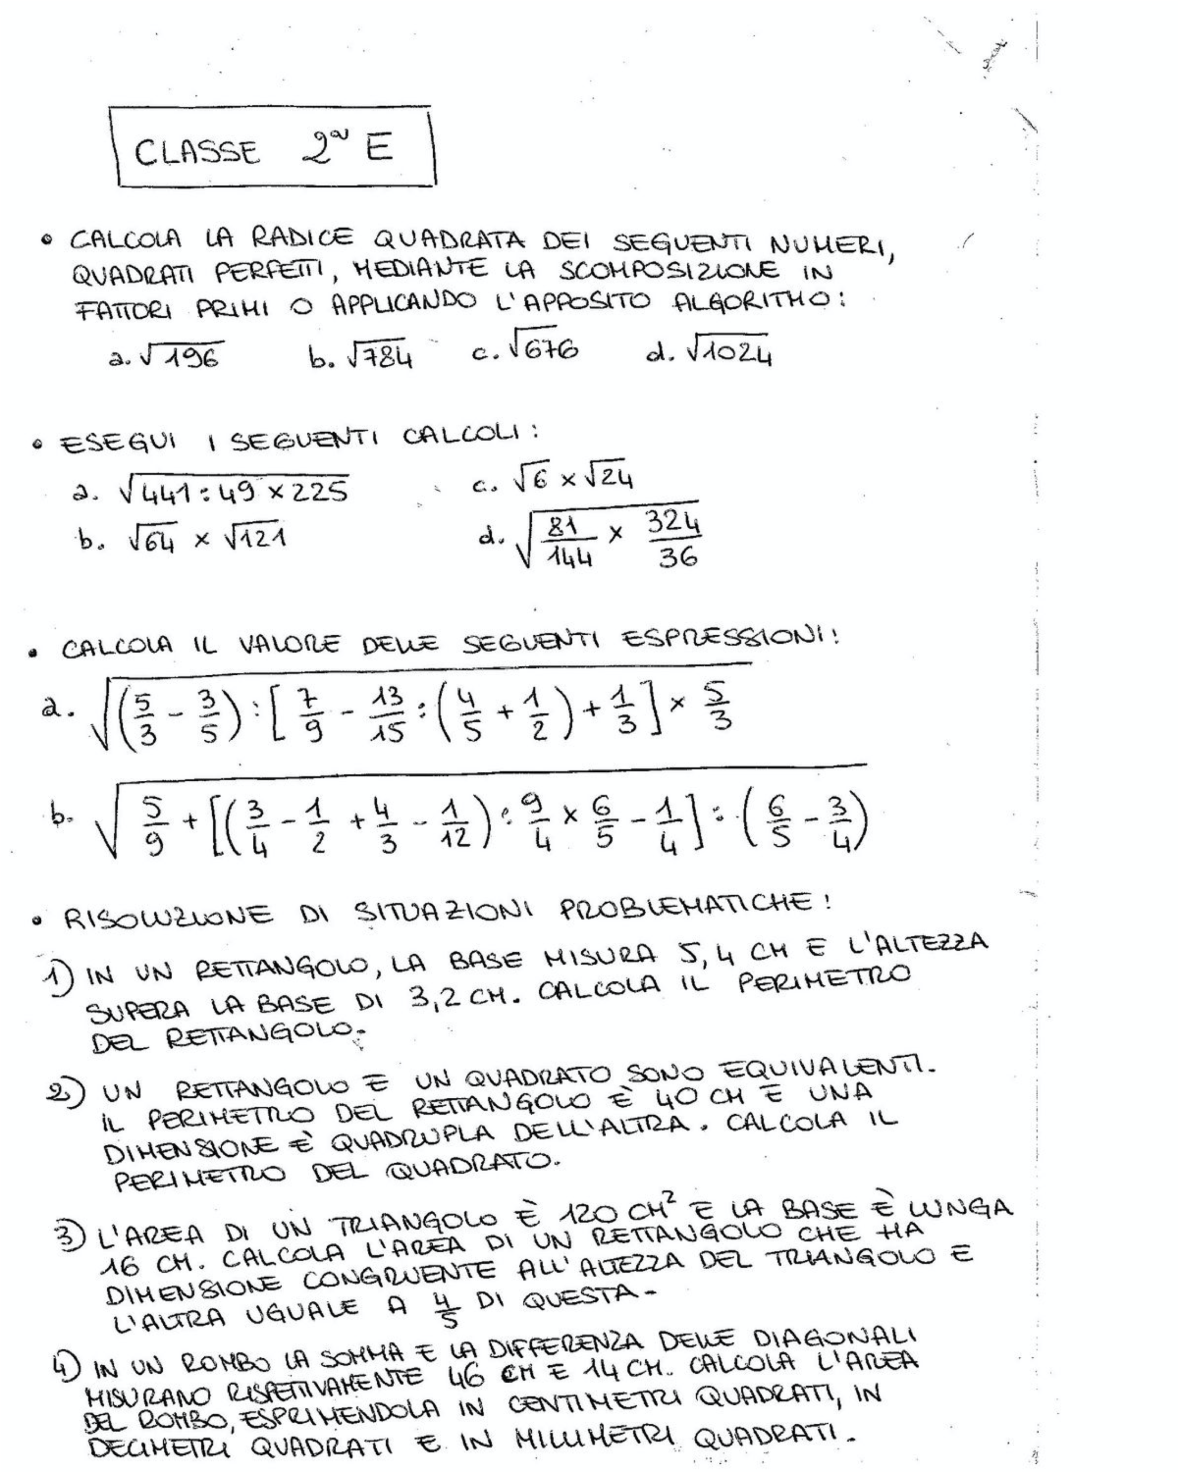 CLASSE 2ª E
• CALCOLA LA RADICE QUADRATA DEI SEGUENTI NUMERI,
QUADRATI PERFETTI, MEDIANTE LA SCOMPOSIZIONE IN
FATTORI PRIMI O APPLICANDO L'APPOSITO ALGORITMO:
a. √196 b. √784 c. √676 d. √1024
• ESEGUI I SEGUENTI CALCOLI:
a. √(441:49×225) c. √6 × √24
b. √64 × √121 d. √(81/144 × 324/36)
• CALCOLA IL VALORE DELLE SEGUENTI ESPRESSIONI:
a. √((5/3 - 3/5) : [7/9 - 13/15 : (4/5 + 1/2) + 1/3] × 5/3)
b. √(5/9 + [(3/4 - 1/2 + 4/3 - 1/12) : 9/4 × 6/5 - 1/4] : (6/5 - 3/4))
• RISOLUZIONE DI SITUAZIONI PROBLEMATICHE:
1) IN UN RETTANGOLO, LA BASE MISURA 5,4 CM E L'ALTEZZA
SUPERA LA BASE DI 3,2 CM. CALCOLA IL PERIMETRO
DEL RETTANGOLO.
2) UN RETTANGOLO E UN QUADRATO SONO EQUIVALENTI.
IL PERIMETRO DEL RETTANGOLO È 40 CM E UNA
DIMENSIONE È QUADRUPLA DELL'ALTRA. CALCOLA IL
PERIMETRO DEL QUADRATO.
3) L'AREA DI UN TRIANGOLO È 120 CM² E LA BASE È LUNGA
16 CM. CALCOLA L'AREA DI UN RETTANGOLO CHE HA
DIMENSIONE CONGRUENTE ALL'ALTEZZA DEL TRIANGOLO E
L'ALTRA UGUALE A 4/5 DI QUESTA.
4) IN UN ROMBO LA SOMMA E LA DIFFERENZA DELLE DIAGONALI
MISURANO RISPETTIVAMENTE 46 CM E 14 CM. CALCOLA L'AREA
DEL ROMBO, ESPRIMENDOLA IN CENTIMETRI QUADRATI, IN
DECIMETRI QUADRATI E IN MILLIMETRI QUADRATI.